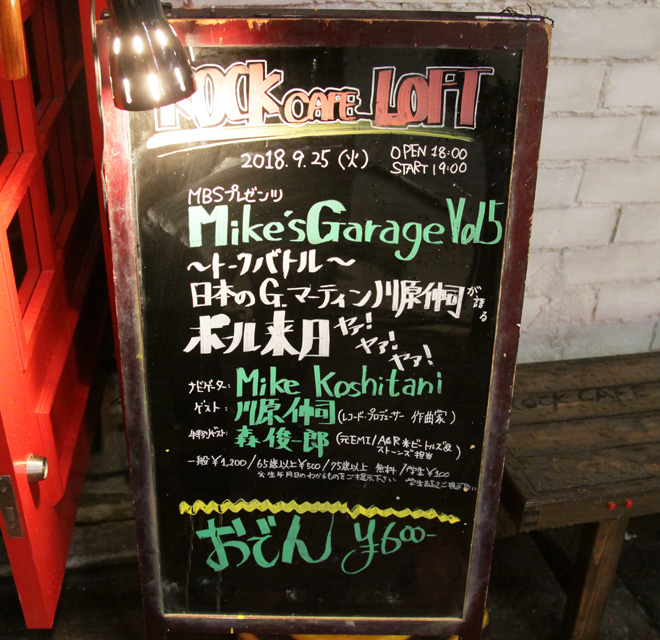 ROCK CAFE LOFT
2018.9.25(火) OPEN 18:00
START 19:00
MBSプレゼンツ
Mike'sGarage Vol5
〜トークバトル〜
日本のG.マーティン川原伸司が語る
ポール来日ヤァ!ヤァ!ヤァ!
ナビゲーター: Mike Koshitani
ゲスト: 川原伸司(レコード・プロデューサー 作曲家)
特別ゲスト: 森俊一郎(元EMI/A&R 米ビートルズ&
ストーンズ担当)
一般¥1,200/65歳以上¥500/75歳以上 無料/学生¥100
生年月日のわかるものをご提示下さい 学生証ご提示
おでん ¥600-
ROCK CAFE